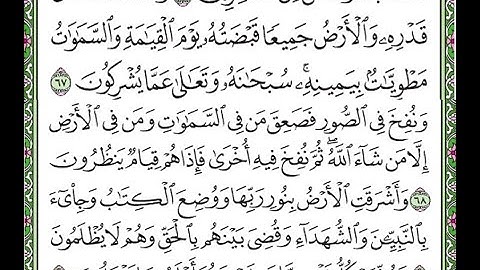 قَدْرِهِۦ وَٱلْأَرْضُ جَمِيعًا قَبْضَتُهُۥ يَوْمَ ٱلْقِيَٰمَةِ وَٱلسَّمَٰوَٰتُ
مَطْوِيَّٰتٌۢ بِيَمِينِهِۦ ۚ سُبْحَٰنَهُۥ وَتَعَٰلَىٰ عَمَّا يُشْرِكُونَ ٦٧
وَنُفِخَ فِى ٱلصُّورِ فَصَعِقَ مَن فِى ٱلسَّمَٰوَٰتِ وَمَن فِى ٱلْأَرْضِ
إِلَّا مَن شَآءَ ٱللَّهُ ۖ ثُمَّ نُفِخَ فِيهِ أُخْرَىٰ فَإِذَا هُمْ قِيَامٌ يَنظُرُونَ
٦٨ وَأَشْرَقَتِ ٱلْأَرْضُ بِنُورِ رَبِّهَا وَوُضِعَ ٱلْكِتَٰبُ وَجِا۟ىٓءَ
بِٱلنَّبِيِّۦنَ وَٱلشُّهَدَآءِ وَقُضِىَ بَيْنَهُم بِٱلْحَقِّ وَهُمْ لَا يُظْلَمُونَ